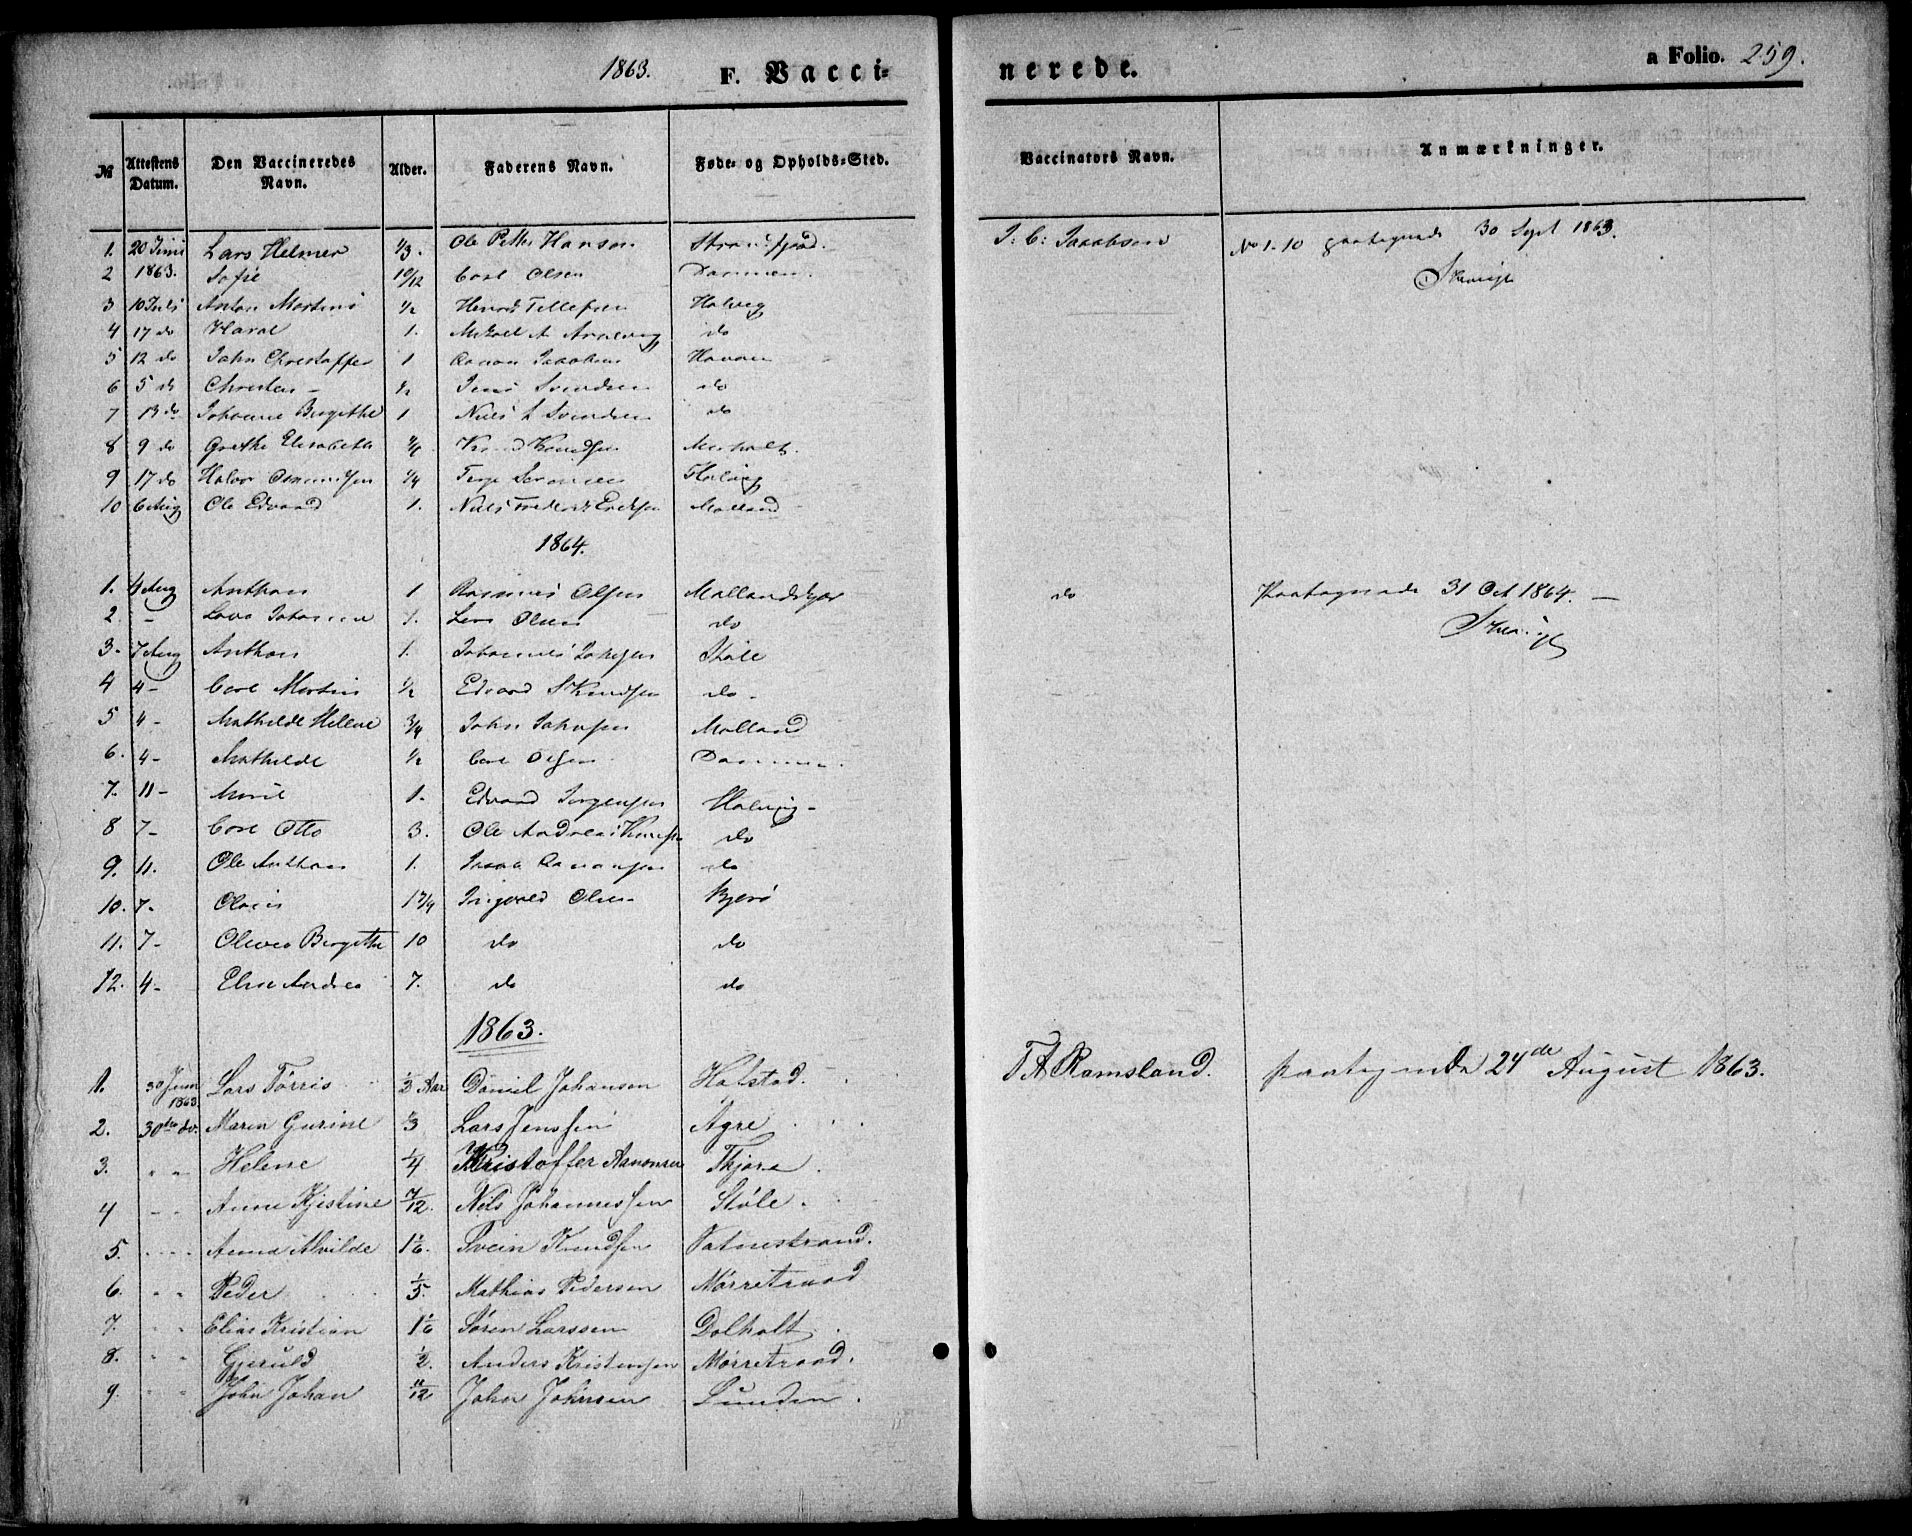 1863. F. Vacci= nerede. a Folio. 259.
№ Attestens Datum. Den Vaccineredes Navn. Alder. Faderens Navn. Føde- og Opholds-Sted. Vaccinators Navn. Anmærkninger.
1. 20 Juni Lars Helmer 1/3. Ole Petter Hansen J: C: Jacobsen No 1-10 30 Sept 1863.
2 1863. Sofie 10/12 Carl Olsen Dammen.
3 10 Juli Anton Martins 1/2 Henrik Tellefsen Holvig
4 17 do Haral 1. do
5 12 do John Christoffer 1 Aanon Jacobsen Haven
6 5 do Christen - 1/2 Jens Svendsen do
7 13 do Johanne Birgithe 1 Niels S Svendsen do
8 9 do Grethe Elisabeth Knud Knudsen
9 17 do Halvor 1/4 Terje Holvig
10 6 Aug Ole Edvard 1. Niels Frederik Molland
1864.
1. 4 Aug Anthon 1 Rasmus Olsen Mollandskjær do 31 Oct 1864. -
2. - Johanne 1. Lars Olsen do
3. 7 Aug Anthon 1. Johannes Støle
4 4- Carl Martin 1/2 Edvard S Knudsen do -
5 4- Mathilde Helene 3/4 John Johnsen Molland
6. 4- Mathilde 1/2 Carl Olsen Dammen.
7. 11- 1. Edvard Jørgensen Holvig -
8 7- Carl Otto 3. Ole Andreas do
9. 11. Ole Anthon 1. Isaac Aanonsen do
10. 7- Olais Ingvald Olsen
11. 7- Olivia Birgitha 10 do do
12. 4- Elise Andrea 7. do do
1863.
1. 30 Juni 1863 Lars Tørris 1/2 Aar Daniel Johansen Holstad. T A Ramsland. 24de August 1863.
2. 30te do. Maren Gurine 1/3 Lars Jenssen Agre
3. " " Helene 1/4 Kristoffer Aanonsen
4 - " Anne Kjistine 7/12. Nils Johannessen Støle.
5. " " Anna Alvilde 1 1/6. Svein Knudsen Vatnestrand.
6. " " Peder 1/5. Mathias Pedersen Mørretraad
7. " " Elias Kristian 1 1/6 Søren Larssen Dolholt
8. " " Gjeruld 1/2. Anders Kristensen Mørretraad.
9. " " John Johan 11/12 John Johnsen Lunden.